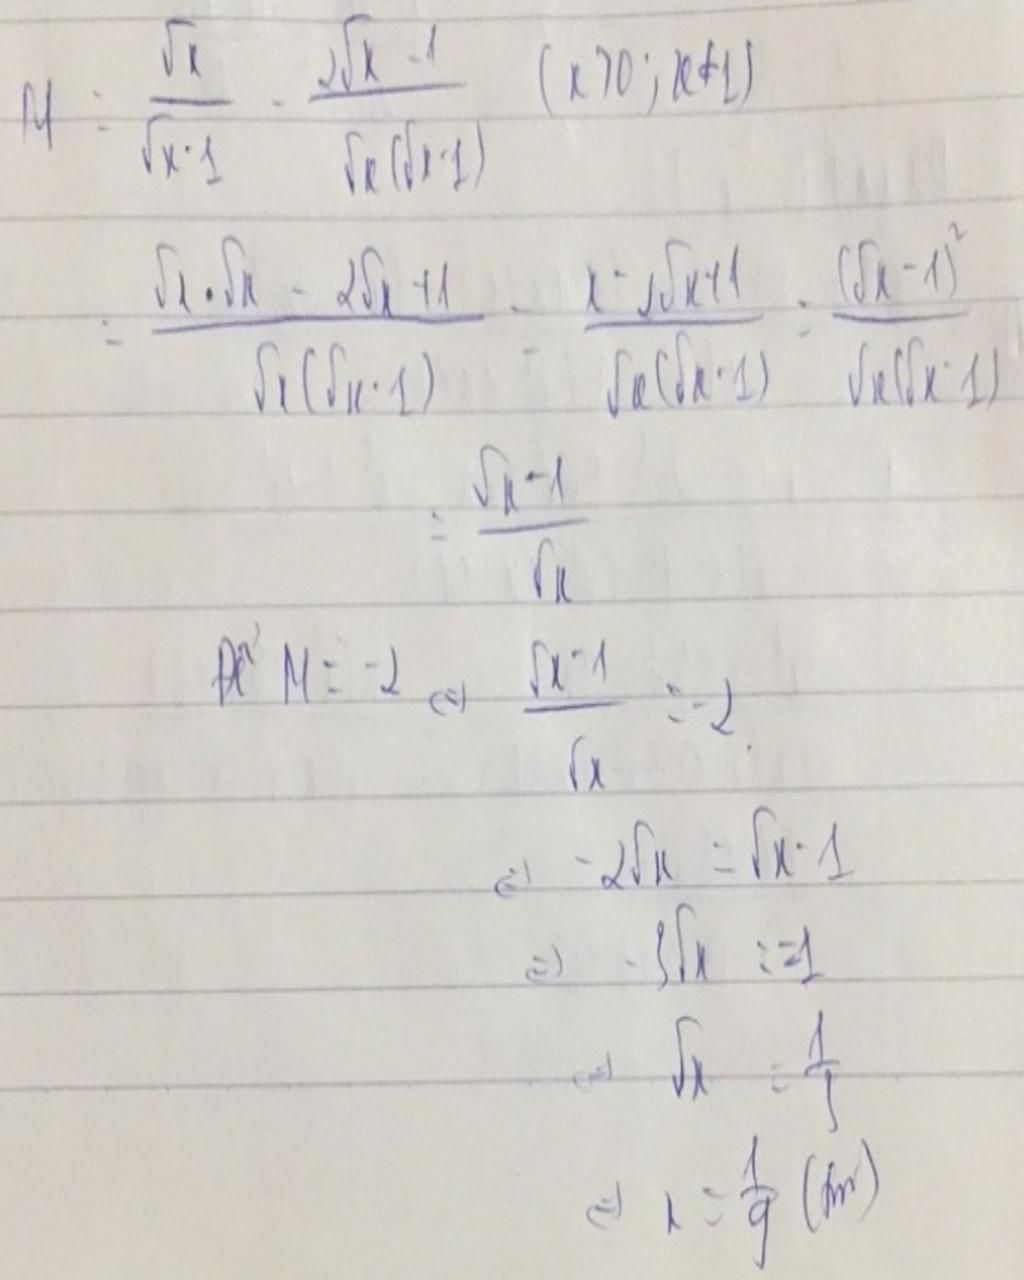 M = \frac{\sqrt{x}}{\sqrt{x}-1} - \frac{2\sqrt{x}-1}{\sqrt{x}(\sqrt{x}-1)} (x>0; x≠1)
= \frac{\sqrt{x}.\sqrt{x} - 2\sqrt{x}+1}{\sqrt{x}(\sqrt{x}-1)} = \frac{x-2\sqrt{x}+1}{\sqrt{x}(\sqrt{x}-1)} = \frac{(\sqrt{x}-1)^2}{\sqrt{x}(\sqrt{x}-1)}
= \frac{\sqrt{x}-1}{\sqrt{x}}
Để M = -2 ⇔ \frac{\sqrt{x}-1}{\sqrt{x}} = -2
⇔ -2\sqrt{x} = \sqrt{x}-1
⇔ -3\sqrt{x} = -1
⇔ \sqrt{x} = \frac{1}{3}
⇔ x = \frac{1}{9} (tm)